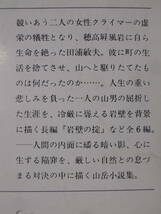 競いあう二人の女性クライマーの虚
栄の犠牲となり、穂高屏風岩に自ら
生命を絶った田浦敏夫。彼に町の生
活を捨てさせ、山へと駆りたてたも
のは何だったのか……。人生の重い
悲しみを負った一人の山男の屈折し
た生涯を、冷厳に聳える岩壁を背景
に描く長編「岩壁の掟」など全６編。
──人間の内面に巣くう暗い影、心に
生じる陥穽を、厳しい自然との息づ
まる対決の中に描く山岳小説集。